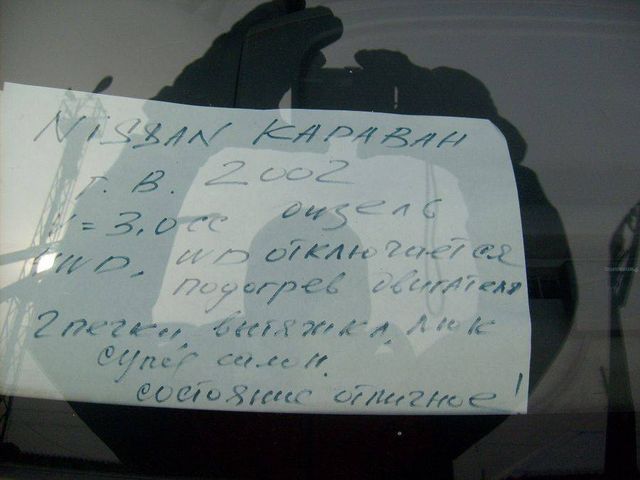 NISSAN КАРАВАН
г. в. 2002
v = 3,0 cc дизель
4WD, WD отключается
подогрев двигателя
2 печки, вытяжка, люк
супер салон.
состояние отличное!